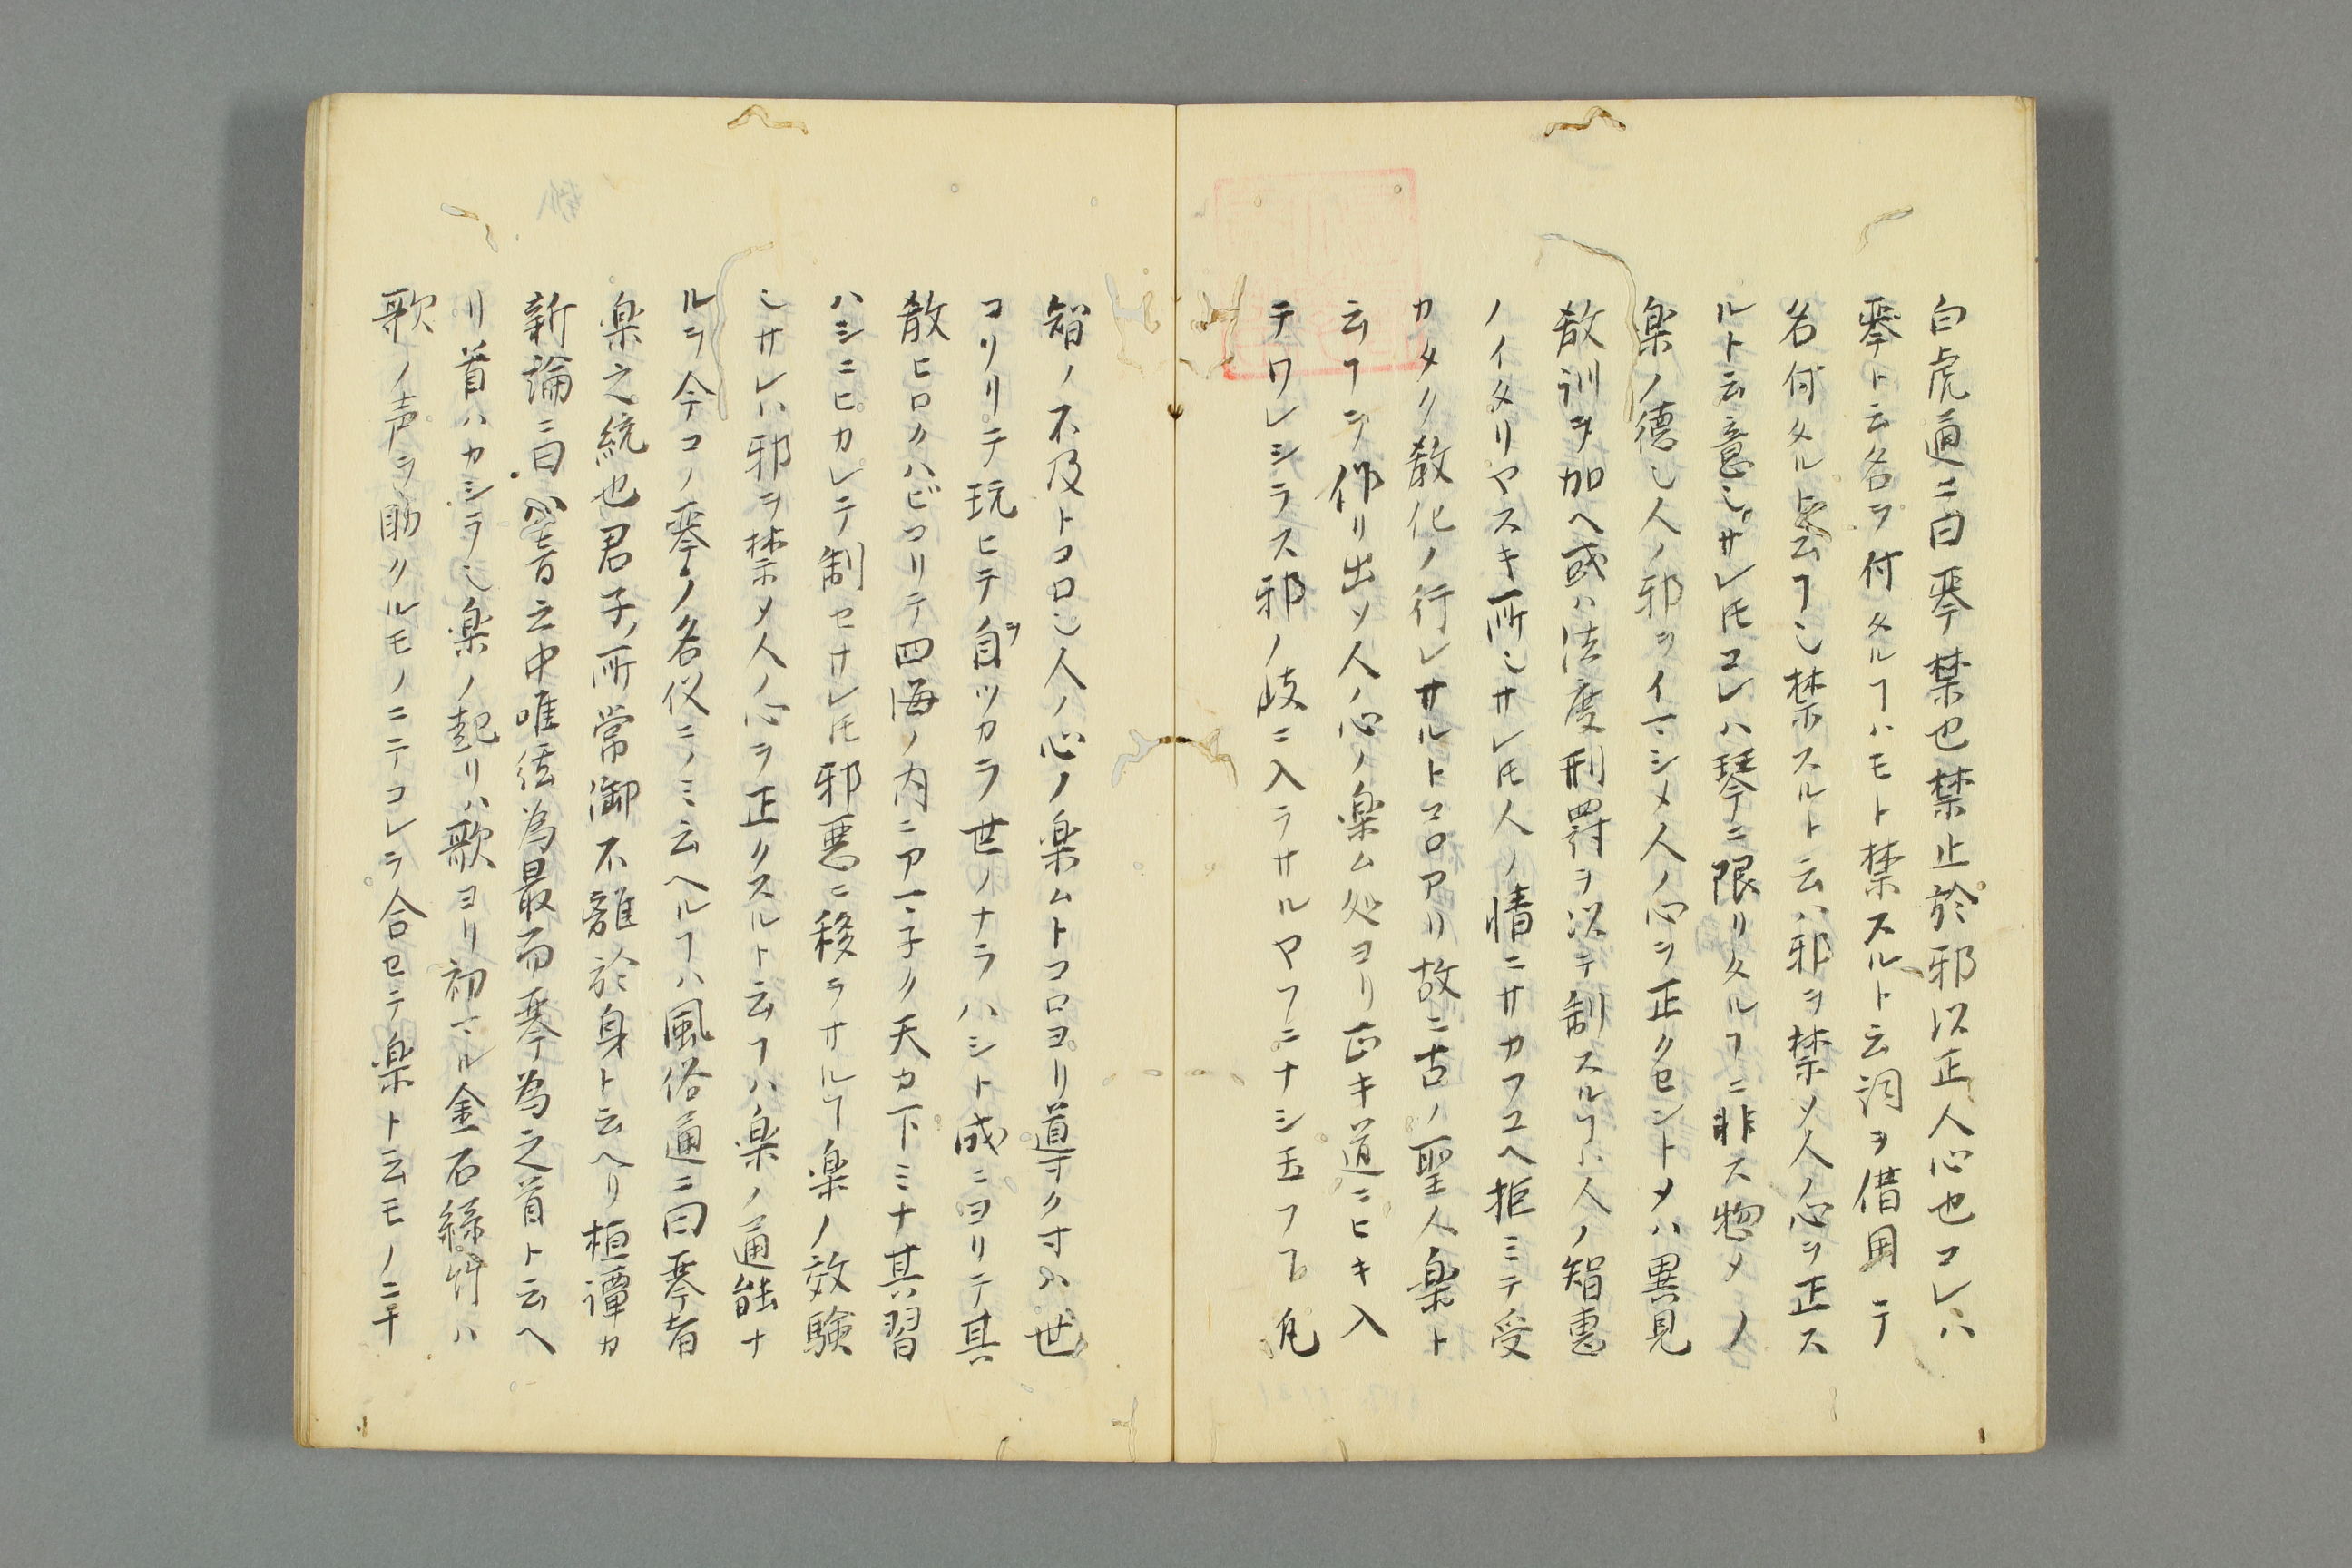 白虎通ニ曰琴禁也禁止於邪以正人心也コレハ
琴ト云名ヲ付タルヿハモト禁スルト云詞ヲ借用テ
名付タルト云ヿ也禁スルト云ハ邪ヲ禁メ人ノ心ヲ正ス
ルト云意也サレ𪜈コレハ琴ニ限リタルヿニ非ス惣メノ
楽ノ徳也人ノ邪ヲイマシメ人ノ心ヲ正クセントメハ異見
教訓ヲ加ヘ或ハ法度刑罰ヲ以テ制スルヿハ人ノ智恵
ノイタリヤスキ所也サレ𪜈人ノ情ニサカフユヘ拒ミテ受
カタク教化ノ行レサルトコロアリ故ニ古ノ聖人楽ト
云ヿヲ作リ出メ人ノ心ノ楽ム処ヨリ正キ道ニヒキ入
テワレシラス邪ノ岐ニ入ラサルヤフニナシ玉フヿ凡
智ノ不及トコロ也人ノ心ノ楽ムトコロヨリ導ク寸ハ世
コソリテ玩ヒテ自ヲツカラ世ノナラハシト成ニヨリテ其
教ヒロクハビコリテ四海ノ内ニアマ子ク天カ下ミナ其習
ハシニヒカレテ制セサレ𪜈邪悪ニ移ラサルヿ楽ノ效験
也サレハ邪ヲ禁メ人ノ心ヲ正クスルト云ヿハ楽ノ通能ナ
ルヲ今コノ琴ノ名仪ニノミ云ヘルヿハ風俗通ニ曰琴者
楽之統也君子所常御不離於身ト云ヘリ桓譚カ
新論ニ曰八音之中唯弦為最而琴為之首ト云ヘ
リ首ハカシラ也楽ノ起リハ歌ヨリ初マル金石絲竹ハ
歌ノ声ヲ助クルモノニテコレヲ合セテ楽ト云モノニ干